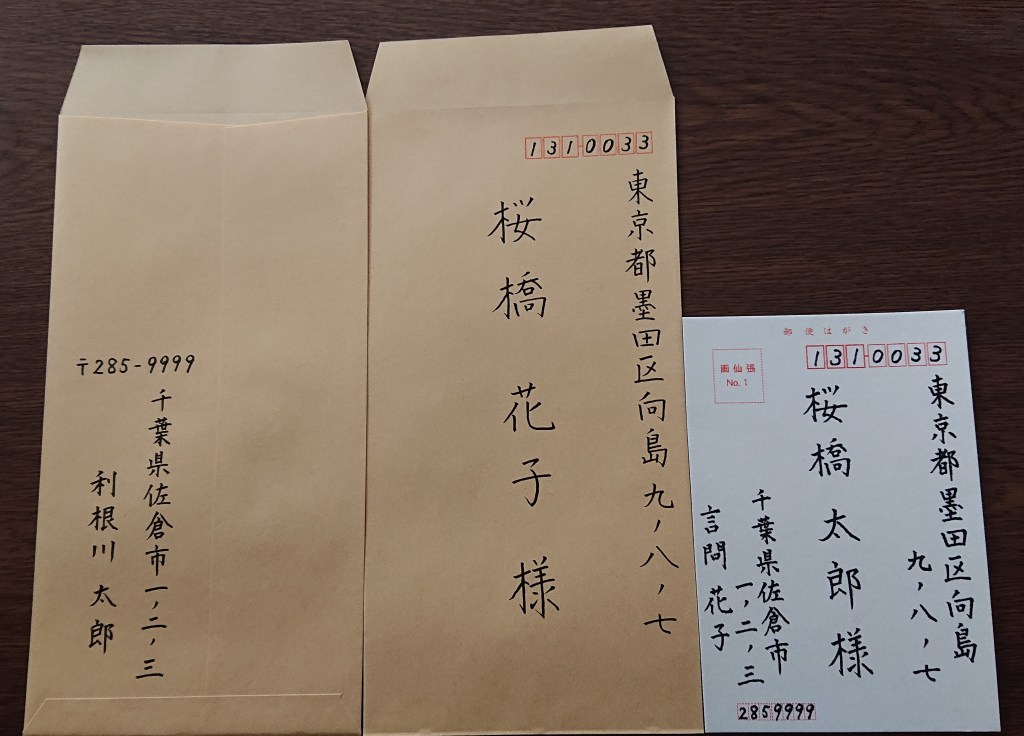 〒285-9999
千葉県佐倉市一ノ二ノ三
利根川 太郎
1310033
東京都墨田区向島九ノ八ノ七
桜橋 花子 様
郵便はがき
1310033
画仙張
No.1
東京都墨田区向島
九ノ八ノ七
桜橋 太郎 様
千葉県佐倉市
一ノ二ノ三
言問 花子
2859999